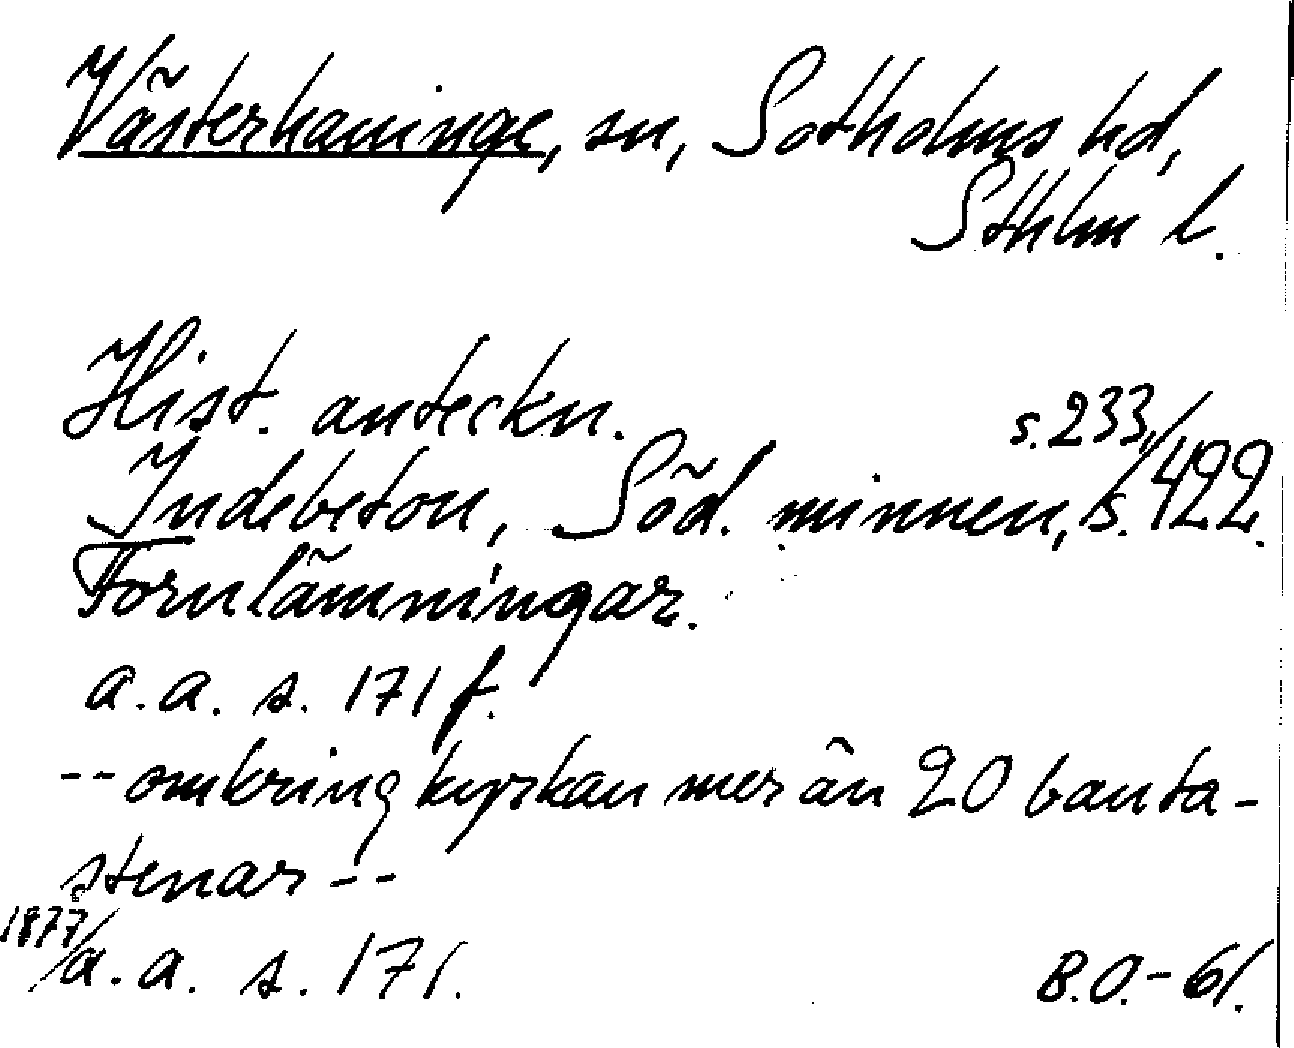 Västerhaninge, sn, Sotholms hd,
Sthlm l.
Hist. anteckn.
s. 233,
Indebetou, Söd. minnen, s. 422.
Fornlämningar.
a.a. s. 171 f.
-- omkring kyrkan mer än 20 bauta-
stenar --
1877
a.a. s. 171.
B.O.-61.